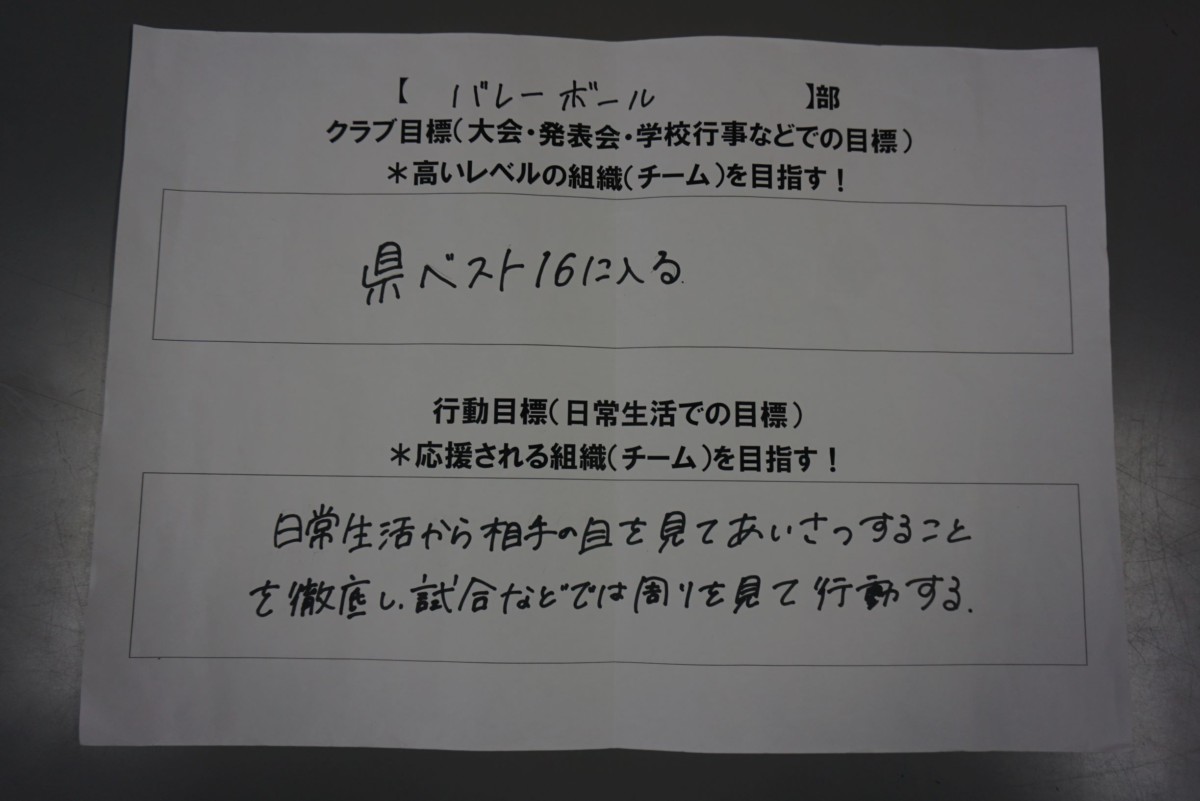 【 バレーボール 】部
クラブ目標(大会・発表会・学校行事などでの目標)
＊高いレベルの組織(チーム)を目指す！
県ベスト16に入る.
行動目標(日常生活での目標)
＊応援される組織(チーム)を目指す！
日常生活から相手の目を見てあいさつすること
を徹底し、試合などでは周りを見て行動する.